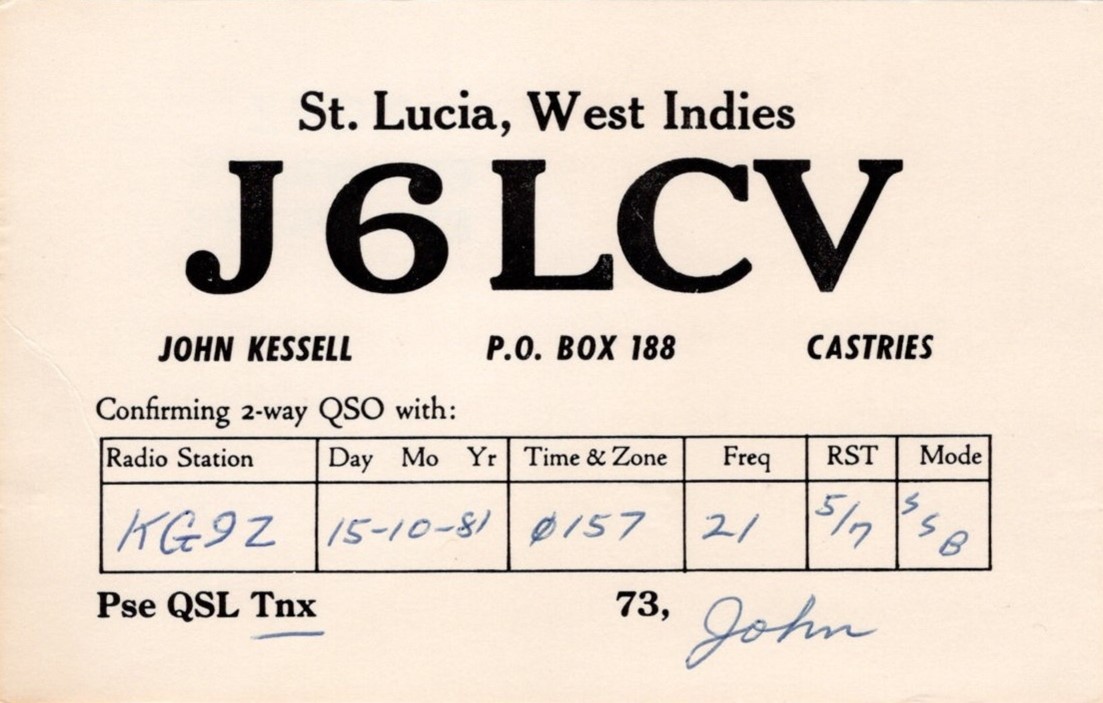 St. Lucia, West Indies
J6LCV
JOHN KESSELL P.O. BOX 188 CASTRIES
Confirming 2-way QSO with:
Radio Station Day Mo Yr Time & Zone Freq RST Mode
KG9Z 15-10-81 Ø157 21 5/7 SSB
Pse QSL Tnx 73, John